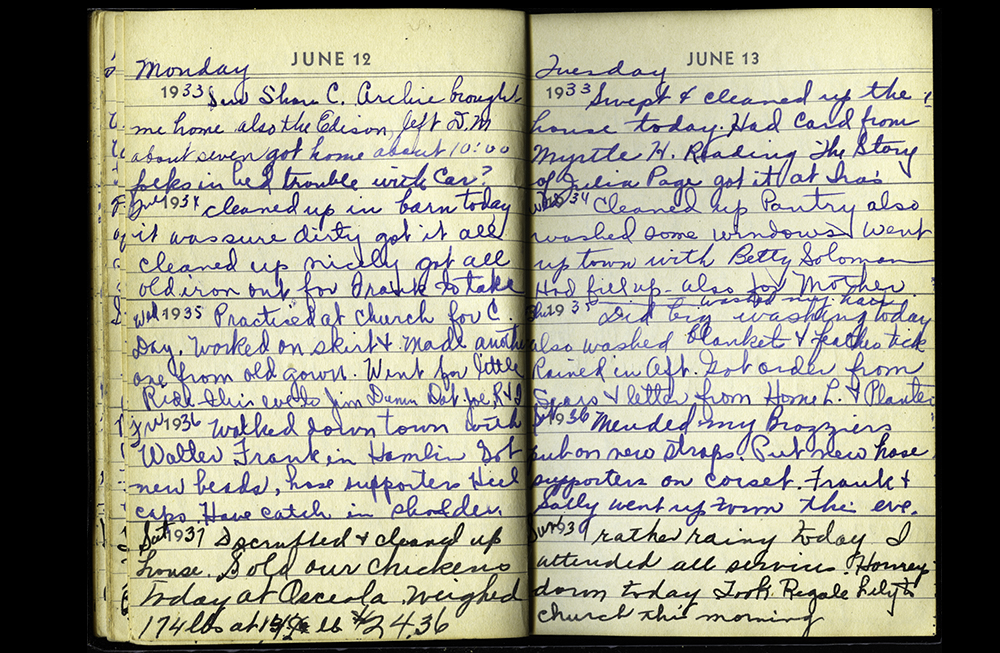 JUNE 12
Monday
1933 Sun Shan C. Archie brought
me home also the Edison left D.M
about seven got home about 10:00
folks in bed trouble with Car?
1934 cleaned up in barn today
it was sure dirty got it all
cleaned up nicely got all
old iron out for Frank to take
Wed 1935 Practiced at church for C.
Day. Worked on skirt & made another
one from old gown. Went for little
Ride this eve to Jim Dunn Dot, Joe, R & I
Fri 1936 Walked down town with
Walter Frank in Hamlin Got
new beads, hose supporters Heel
caps. Have catch in shoulder.
Sat 1937 & cleaned up
house. Sold our chickens
today at Osceola weighed
174 lbs at lb $24.36
JUNE 13
Tuesday
1933 Swept & cleaned up the
house today. Had card from
Myrtle H. Reading The Story
of Julia Page got it at Ira's
Wed 34 Cleaned up Pantry also
washed some windows went
up town with Betty Soloman
Had fill up also for Mother.
washed my hair
Thu 1935 Did big washing today
also washed blanket & feather tick
Rained in Aft. Got order from
Sears & letter from Home L. & Planter
1936 Mended my Brazziers
put on new straps. Put new hose
supporters on corset. Frank &
Sally went up town this eve.
Sun 37 rather rainy today I
attended all services.
down today Took Regale Lily to
church this morning